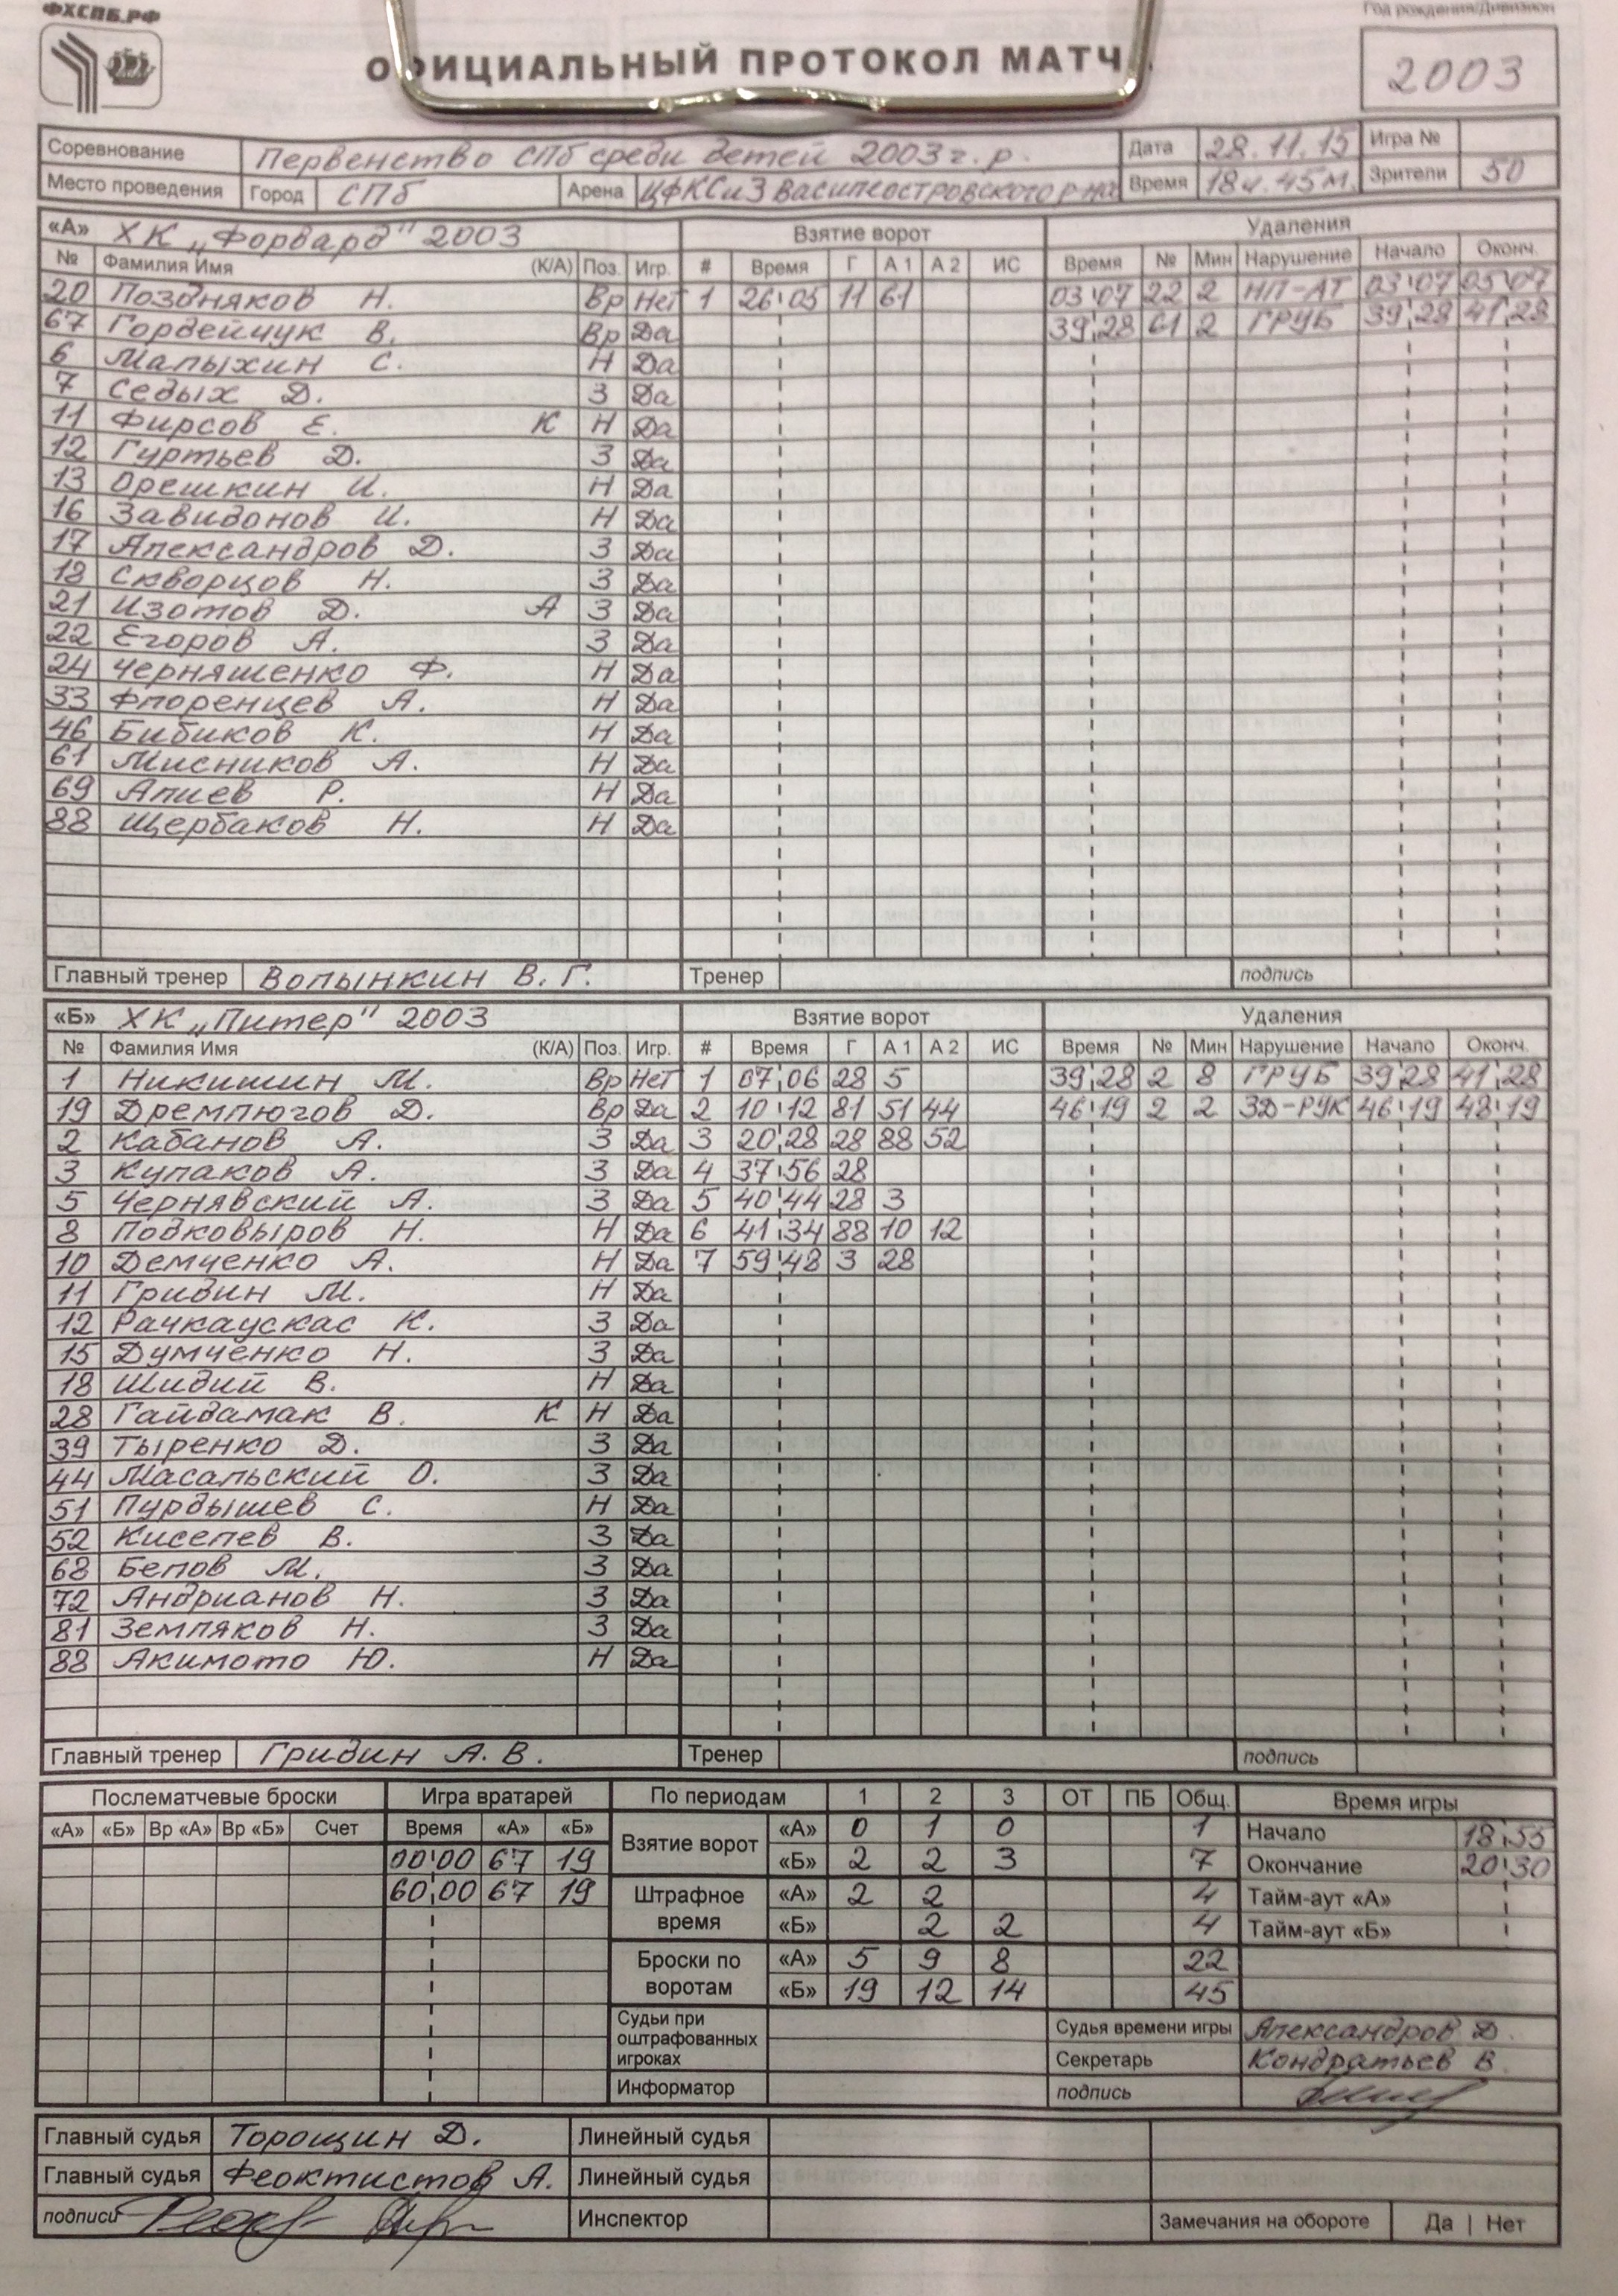 ФХСПБ.РФ
Год рождения/Дивизион
ОФИЦИАЛЬНЫЙ ПРОТОКОЛ МАТЧ
2003
Соревнование Первенство СПб среди детей 2003 г.р. Дата 28.11.15 Игра №
Место проведения Город СПб Арена ЦФКСиЗ Василеостровского р-на Время 18ч.45м. Зрители 50
«А» ХК „Форвард" 2003 Взятие ворот Удаления
№ Фамилия Имя (К/А) Поз. Игр. # Время Г А 1 А 2 ИС Время № Мин Нарушение Начало Оконч.
20 Поздняков Н. Вр Нет 1 26:05 11 61 03:07 22 2 НП-АТ 03:07 05:07
67 Гордейчук В. Вр Да 39:28 61 2 ГРУБ 39:28 41:28
6 Малыхин С. Н Да
7 Седых Д. З Да
11 Фирсов Е. К Н Да
12 Гуртьев Д. З Да
13 Орешкин И. Н Да
16 Завидонов И. Н Да
17 Александров Д. З Да
18 Скворцов Н. З Да
21 Изотов Д. А З Да
22 Егоров А. З Да
24 Черняшенко Ф. Н Да
33 Флоренцев А. Н Да
46 Бибиков К. Н Да
61 Мисников А. Н Да
69 Алиев Р. Н Да
88 Щербаков Н. Н Да
Главный тренер Волынкин В. Г. Тренер подпись
«Б» ХК „Питер" 2003 Взятие ворот Удаления
№ Фамилия Имя (К/А) Поз. Игр. # Время Г А 1 А 2 ИС Время № Мин Нарушение Начало Оконч.
1 Никишин М. Вр Нет 1 07:06 28 5 39:28 2 8 ГРУБ 39:28 41:28
19 Дремлюгов Д. Вр Да 2 10:12 81 51 44 46:19 2 2 ЗД-РУК 46:19 48:19
2 Кабанов А. З Да 3 20:28 28 88 52
3 Кулаков А. З Да 4 37:56 28
5 Чернявский А. З Да 5 40:44 28 3
8 Подковыров Н. Н Да 6 41:34 88 10 12
10 Демченко А. Н Да 7 59:48 3 28
11 Гридин М. Н Да
12 Рачкаускас К. З Да
15 Думченко Н. З Да
18 Шидий В. Н Да
28 Гайдамак В. К Н Да
39 Тыренко Д. З Да
44 Масальский О. З Да
51 Пурдышев С. Н Да
52 Киселев В. З Да
68 Белов М. З Да
72 Андрианов Н. З Да
81 Земляков Н. З Да
88 Акимото Ю. Н Да
Главный тренер Гридин А. В. Тренер подпись
Послематчевые броски Игра вратарей По периодам 1 2 3 ОТ ПБ Общ. Время игры
«А» «Б» Вр «А» Вр «Б» Счет Время «А» «Б» Взятие ворот «А» 0 1 0 1 Начало 18:55
00:00 67 19 «Б» 2 2 3 7 Окончание 20:30
60:00 67 19 Штрафное время «А» 2 2 4 Тайм-аут «А»
«Б» 2 2 4 Тайм-аут «Б»
Броски по воротам «А» 5 9 8 22
«Б» 19 12 14 45
Судьи при оштрафованных игроках Судья времени игры Александров Д.
Секретарь Кондратьев В.
Информатор подпись
Главный судья Торощин Д. Линейный судья
Главный судья Феоктистов А. Линейный судья
подписи Инспектор Замечания на обороте Да | Нет